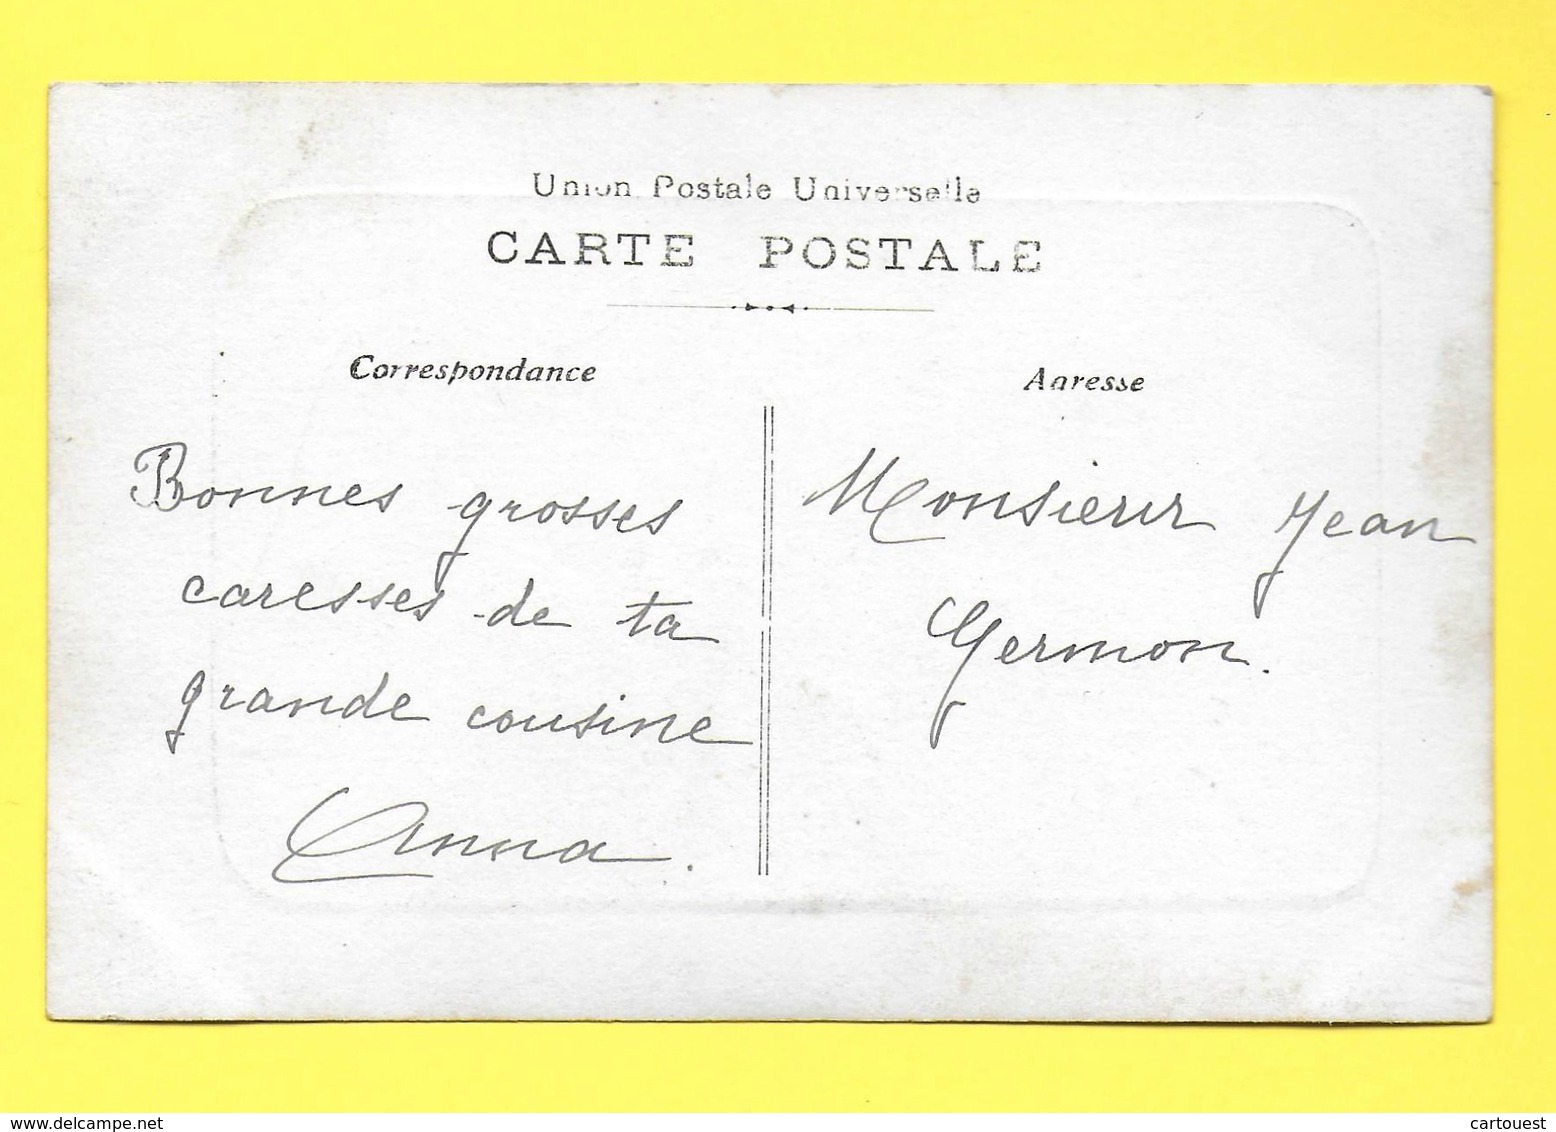 Union Postale Universelle
CARTE POSTALE
Correspondance
Adresse
Bonnes grosses
caresses de ta
grande cousine
Anna.
Monsieur Jean
Germon.
www.delcampe.net
cartouest